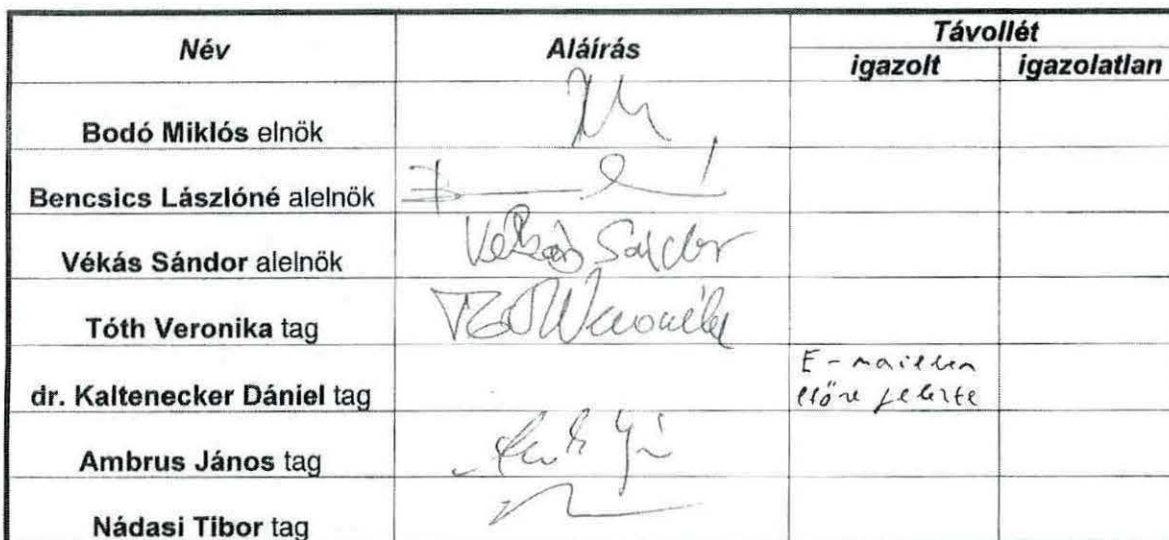 Név Aláírás Távollét
igazolt igazolatlan
Bodó Miklós elnök
Bencsics Lászlóné alelnök
Vékás Sándor alelnök Vékás Sándor
Tóth Veronika tag Tóth Veronika
E-mailben
dr. Kaltenecker Dániel tag előre jelezte
Ambrus János tag
Nádasi Tibor tag